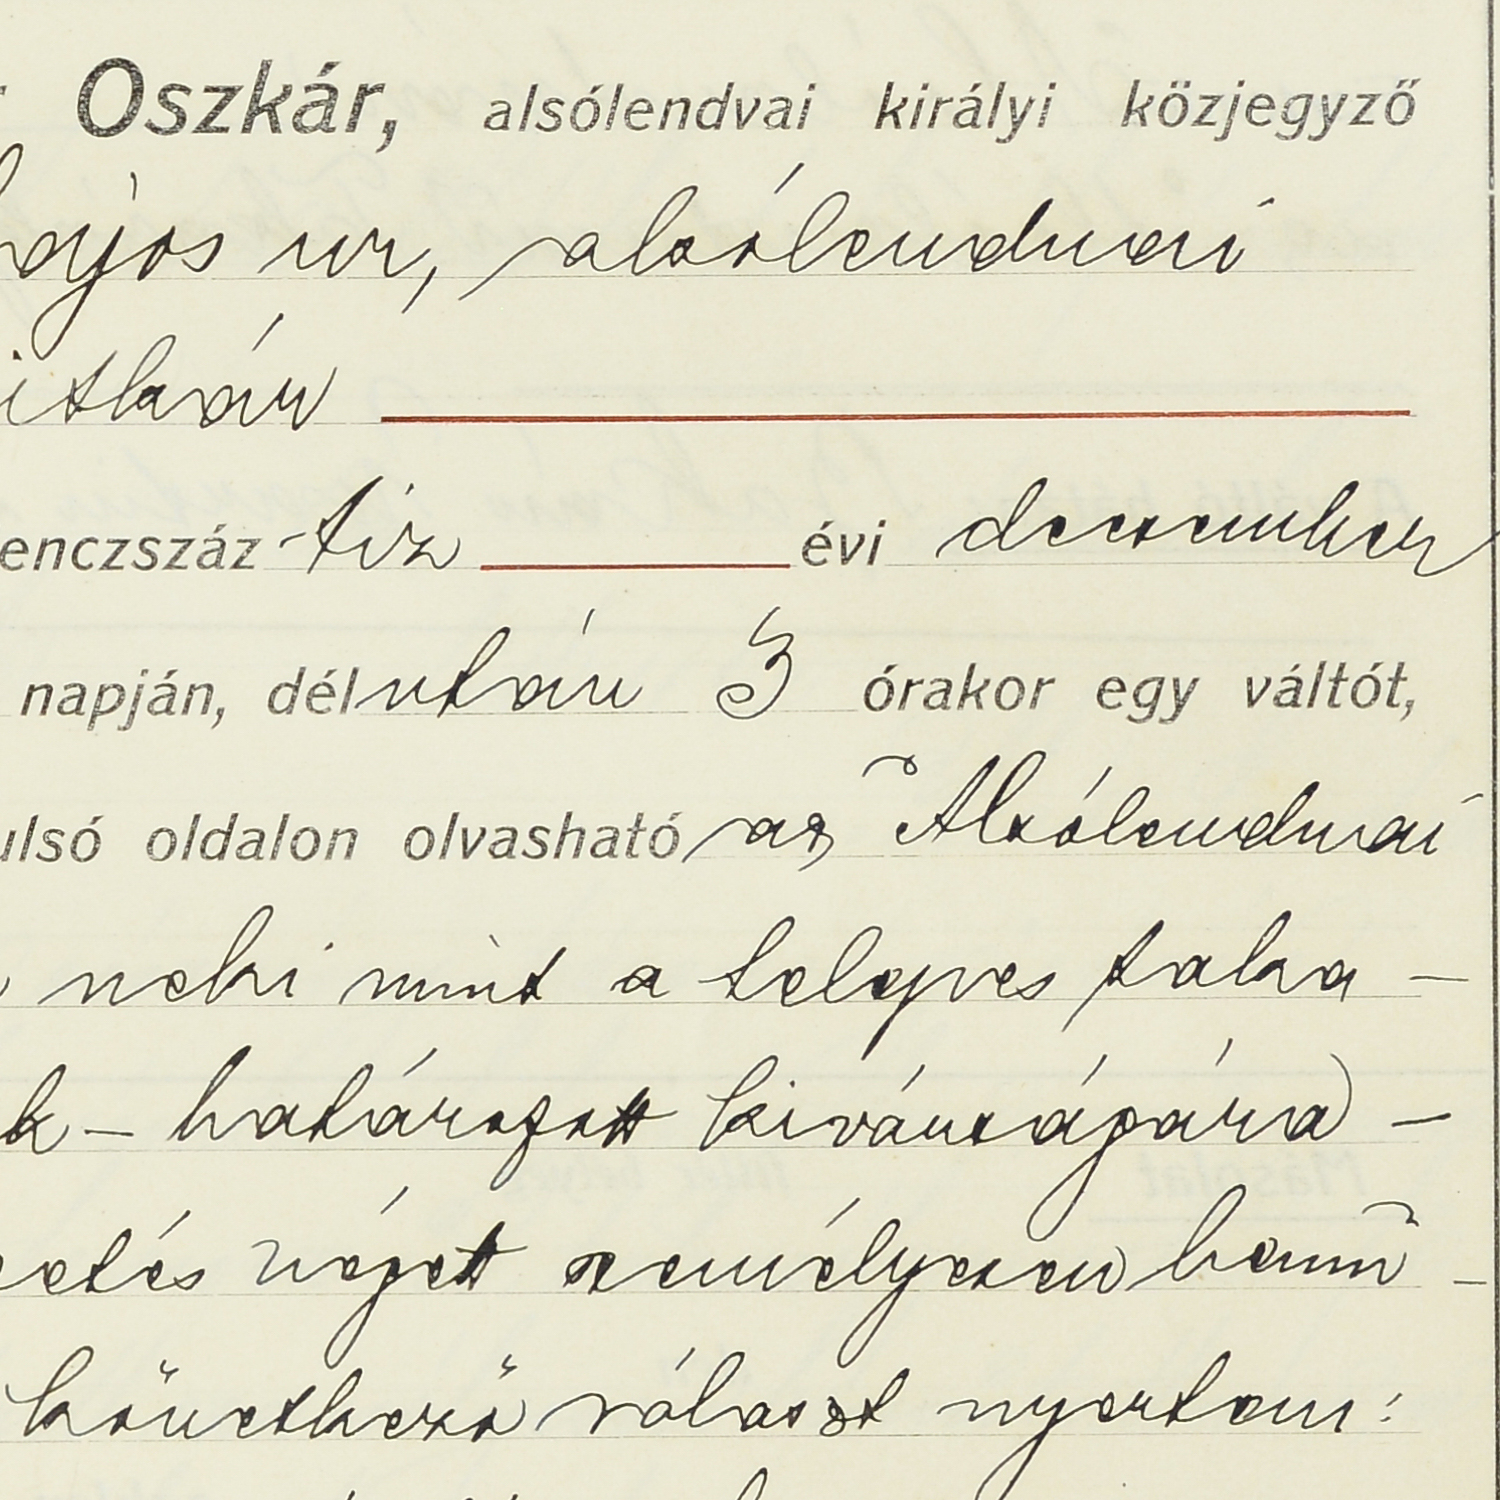 Oszkár, alsólendvai királyi közjegyző
Lajos ur, alsólendvai
enczszáz tiz évi december
napján, délután 3 órakor egy váltót,
ulsó oldalon olvasható az Alsólendvai
neki mint a telepes taka-
k - határozott kivánságára -
etés végett személyesen bemu-
következő választ nyertem: